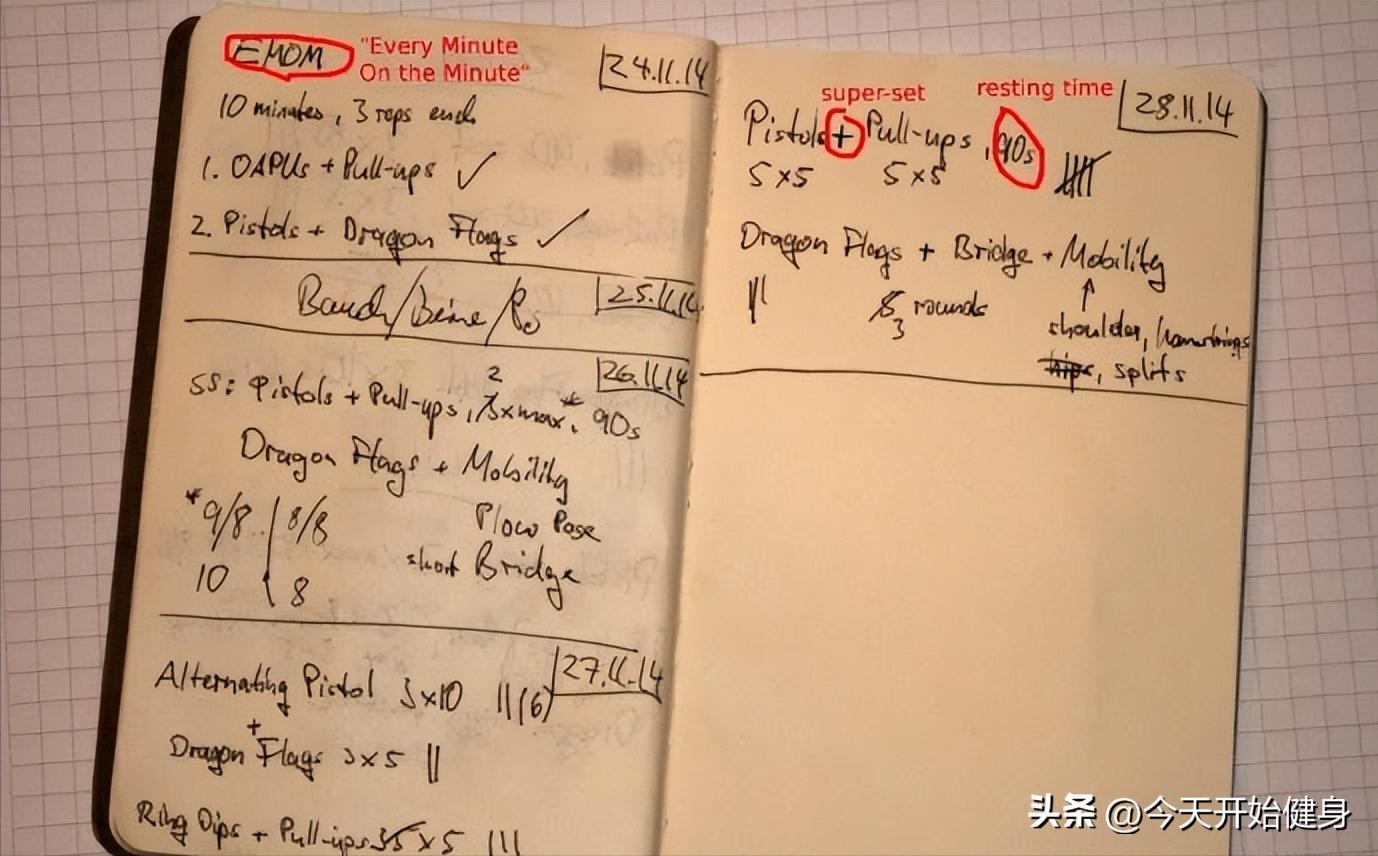 EMOM "Every Minute
On the Minute"
24.11.14
10 minutes, 3 reps each
1. OAPUs + Pull-ups ✓
2. Pistols + Dragon Flags ✓
25.11.14
Bauch/Beine/Po
26.11.14
2
SS: Pistols + Pull-ups, 3xmax*, 90s
Dragon Flags + Mobility
* 9/8 | 8/8
Plow Pose
short Bridge
10 | 8
27.11.14
Alternating Pistol 3x10 ||(6)
+
Dragon Flags 3x5 ||
Ring Dips + Pull-ups 5x5 |||
super-set resting time
28.11.14
Pistols + Pull-ups, 90s
5x5 5x5
Dragon Flags + Bridge + Mobility
|| 5 rounds
3
↑
shoulder, hamstrings
hips, splits
头条 @今天开始健身